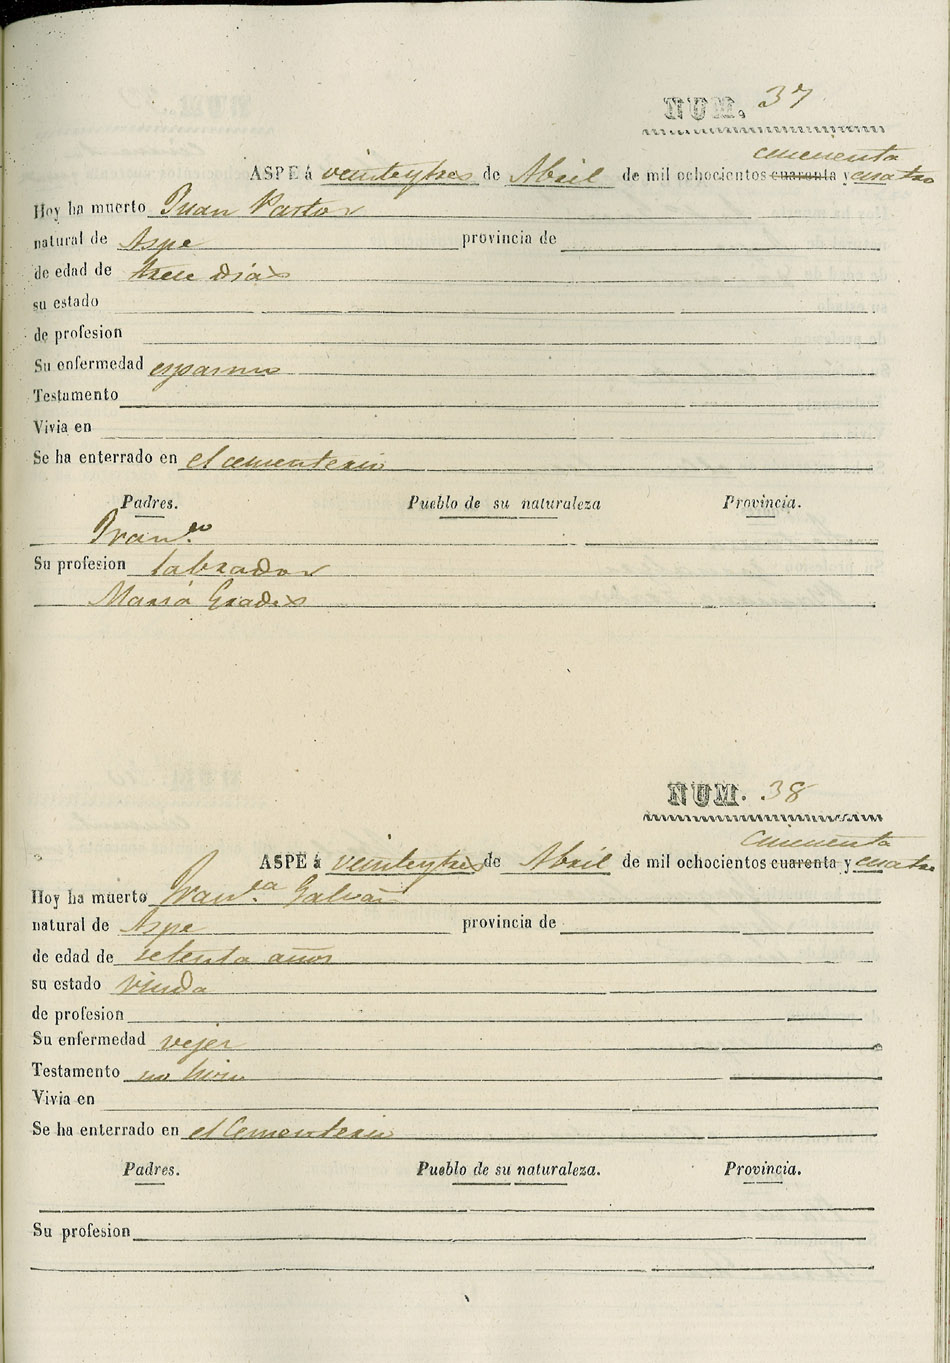 NUM. 37
cincuenta
ASPE á veinteytres de Abril de mil ochocientos cuarenta y cuatro
Hoy ha muerto Juan Pastor
natural de Aspe provincia de
de edad de trece dias
su estado
de profesion
Su enfermedad espasmo
Testamento
Vivia en
Se ha enterrado en el cementerio
Padres. Pueblo de su naturaleza Provincia.
Fran.co
Su profesion labrador
Maria
NUM. 38
cincuenta
ASPE á veinteytres de Abril de mil ochocientos cuarenta y cuatro
Hoy ha muerto Fran.ca Galvañ
natural de Aspe provincia de
de edad de setenta años
su estado viuda
de profesion
Su enfermedad vejez
Testamento no hizo
Vivia en
Se ha enterrado en el Cementerio
Padres. Pueblo de su naturaleza. Provincia.
Su profesion